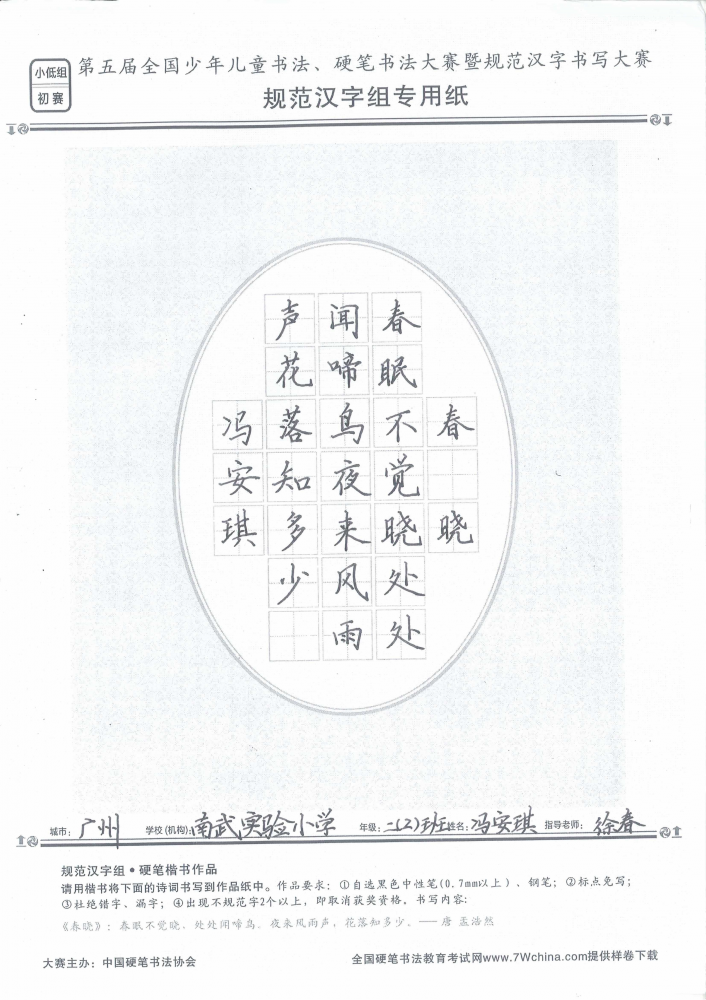 小低组
初赛
第五届全国少年儿童书法、硬笔书法大赛暨规范汉字书写大赛
规范汉字组专用纸
春晓
春眠不觉晓处处
闻啼鸟夜来风雨
声花落知多少
冯安琪
城市：广州 学校(机构)：南武实验小学 年级：二(2)班 姓名：冯安琪 指导老师：徐春
规范汉字组•硬笔楷书作品
请用楷书将下面的诗词书写到作品纸中。作品要求：①自选黑色中性笔(0.7mm以上)、钢笔；②标点免写；
③杜绝错字、漏字；④出现不规范字2个以上，即取消获奖资格。书写内容：
《春晓》：春眠不觉晓，处处闻啼鸟。夜来风雨声，花落知多少。——唐 孟浩然
大赛主办：中国硬笔书法协会
全国硬笔书法教育考试网www.7Wchina.com提供样卷下载